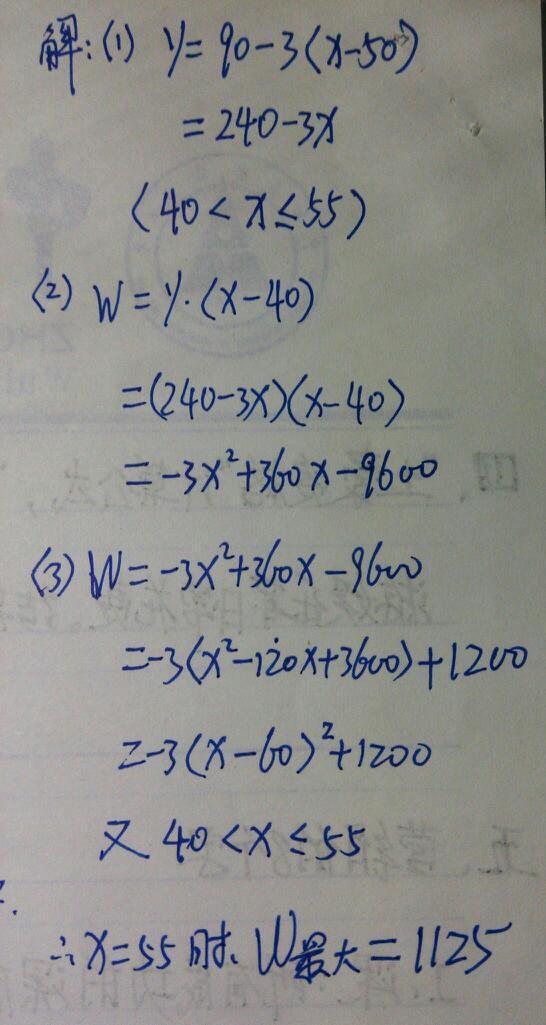 解:(1) y=90-3(x-50)
=240-3x
(40<x≤55)
(2) W=y·(x-40)
=(240-3x)(x-40)
=-3x²+360x-9600
(3) W=-3x²+360x-9600
=-3(x²-120x+3600)+1200
=-3(x-60)²+1200
又 40<x≤55
∴x=55时、W最大=1125